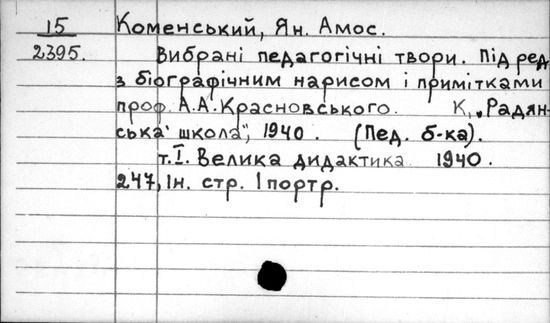 15 Коменський, Ян. Амос.
2395. Вибрані педагогічні твори. Під ред
з біографічним нарисом і примітками
проф. А.А. Красновського. К, „Радян-
ська школа", 1940. (Пед. б-ка).
т.I. Велика дидактика 1940.
247, Iн. стр. I портр.